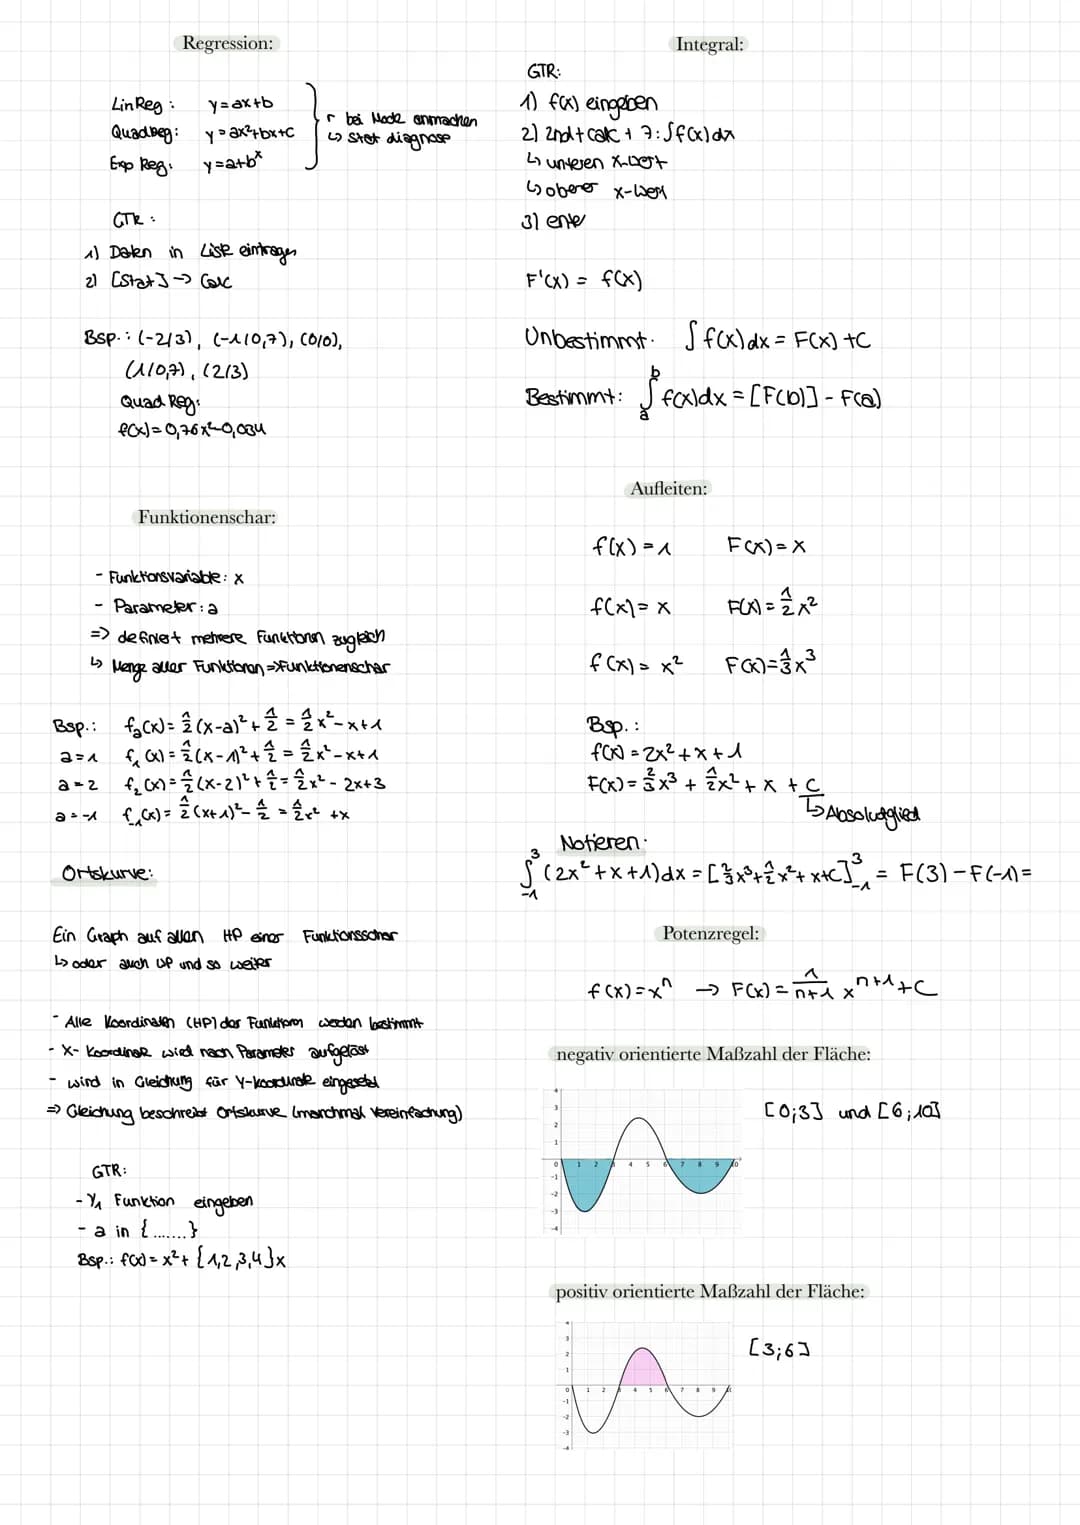 Regression:
LinReg: y=ax+b
QuadReg: y=ax²+bx+c
Exp Reg: y=a+bˣ
r bei Mode anmachen
↳ Stat diagnose
GTR:
1) Daten in Liste eintragen
2) [Stat] → Calc
Bsp.: (-2/3), (-1/0,7), (0/0),
(1/0,7), (2/3)
Quad Reg:
f(x)=0,76x²-0,034
Funktionenschar:
- Funktionsvariable: x
- Parameter: a
=> definiert mehrere Funktionen zugleich
↳ Menge aller Funktionen =>Funktionenschar
Bsp.: f_a(x)=½(x-a)²+½=½x²-x+1
a=1 f₁(x)=½(x-1)²+½=½x²-x+1
a=2 f₂(x)=½(x-2)²+½=½x²-2x+3
a=-1 f₋₁(x)=½(x+1)²-½=½x²+x
Ortskurve:
Ein Graph auf allen HP einer Funktionsschar
↳ oder auch WP und so weiter
- Alle Koordinaten (HP) der Funktion werden bestimmt
- X-Koordinate wird nach Parameter aufgelöst
- wird in Gleichung für Y-Koordinate eingesetzt
=> Gleichung beschreibt Ortskurve (manchmal Vereinfachung)
GTR:
- Y₁ Funktion eingeben
- a in {.......}
Bsp.: f(x)=x²+{1,2,3,4}x
Integral:
GTR:
1) f(x) eingeben
2) 2nd+calc+7:∫f(x)dx
↳ unteren x-Wert
↳ oberer x-Wert
3)
F'(x) = f(x)
Unbestimmt: ∫f(x)dx = F(x)+C
Bestimmt: ∫ₐᵇ f(x)dx = [F(b)] - F(a)
Aufleiten:
f(x)=1 F(x)=x
f(x)=x F(x)=½x²
f(x)=x² F(x)=⅓x³
Bsp.:
f(x)=2x²+x+1
F(x)=⅔x³+½x²+x+C
↳ Absolutglied
Notieren:
∫₋₁³(2x²+x+1)dx=[⅔x³+½x²+x+C]³₋₁ = F(3)-F(-1)=
Potenzregel:
f(x)=xⁿ → F(x)=1/(n+1) xⁿ⁺¹+C
negativ orientierte Maßzahl der Fläche:
[0;3] und [6;10]
4
3
2
1
0 1 2 3 4 5 6 7 8 9 10
-1
-2
-3
-4
positiv orientierte Maßzahl der Fläche:
[3;6]
4
3
2
1
0 1 2 3 4 5 6 7 8 9 10
-1
-2
-3
-4